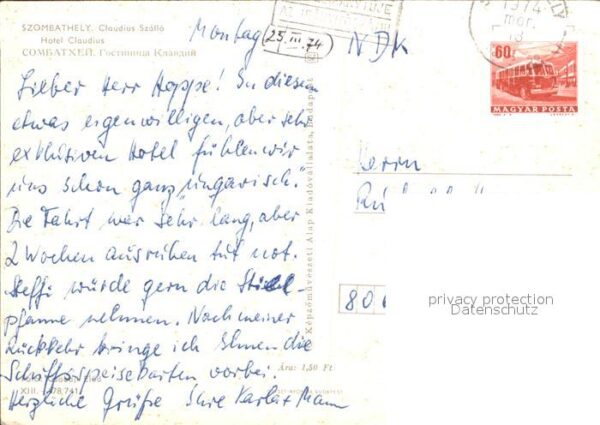 SZOMBATHELY. Claudius Szálló
Hotel Claudius
СОМБАТХЕЙ. Гостиница Клавдий
Montag
(25. III. 74)
NDK
1974
60f
MAGYAR POSTA
Lieber Herr Hoppe! In diesem
etwas eigenwilligen, aber sehr
exklusiven Hotel fühlen wir
uns schon ganz "ungarisch".
Die Fahrt war sehr lang, aber
2 Wochen ausruhen tut not.
Steffi würde gern die Stiel-
pfanne nehmen. Nach meiner
Rückkehr bringe ich Ihnen die
Schiffsspeisekarten vorbei.
Herzliche Grüße Ihre Karla + Mann
Képzőművészeti Alap Kiadóvállalata, Budapest
Ára: 1,50 Ft
Herrn
80
privacy protection
Datenschutz